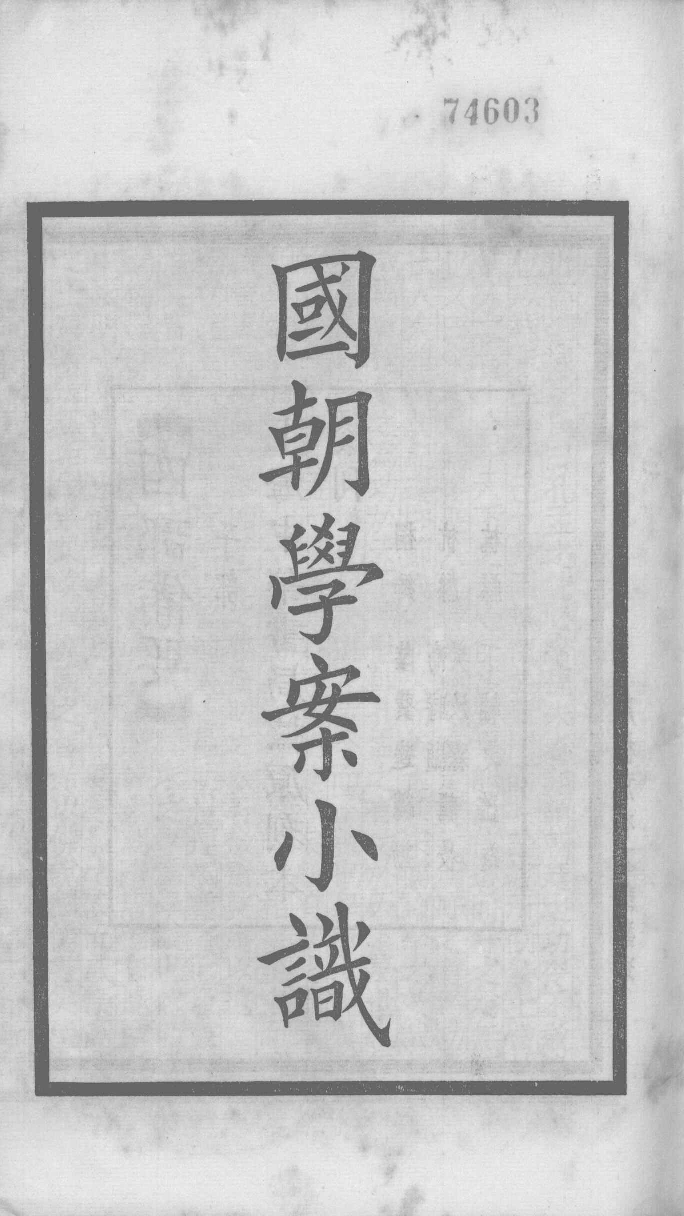 74603
國朝學案小識